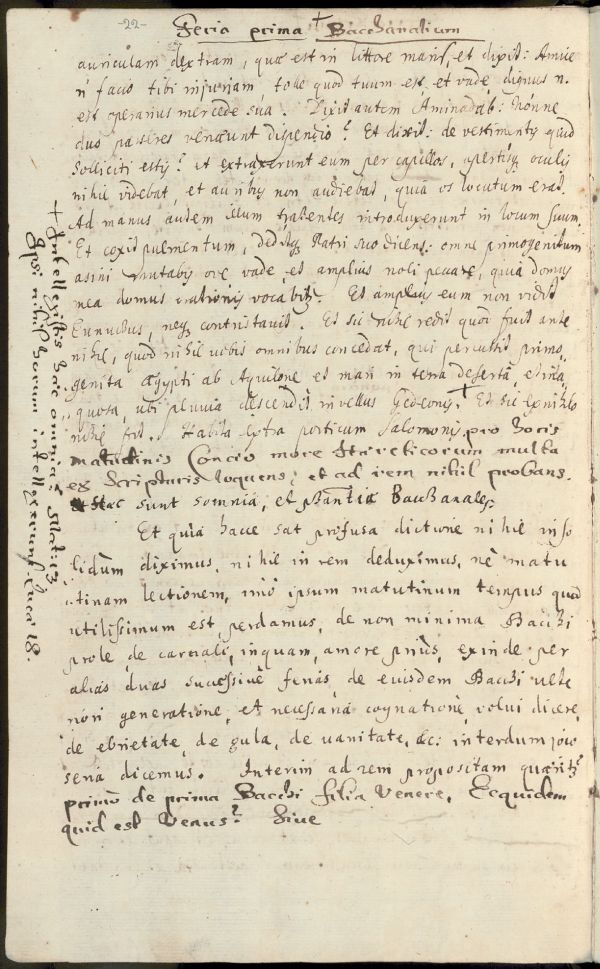 -22-
Feria prima Bacchanalium
auriculam dextram, quae est in littore maris, et dixit: Amice
n̄ facio tibi injuriam, tolle quod tuum est, et vade, dignus n.
est operarius mercede sua. Dixit autem Aminadab: Nonne
duo passeres veneunt dipendio? Et dixit: de vestimentis quid
solliciti estis? et extraxerunt eum per capillos, apertisq oculis
nihil videbat, et auribus non audiebat, quia os locutum erat.
Ad manus autem illum trahentes introduxerunt in locum suum.
Et coxit pulmentum, deditq Patri suo dicens: omne primogenitum
asini mutabis ove vade, et amplius noli peccare, quia domus
mea domus orationis vocabit. Et amplius eum non vidit
Eunuchus, neq contristavit. Et sic nihil redit quod fuit ante
nihil, quod nihil vobis omnibus concedat, qui percussit primo,
genita Ægypti ab Aquilone et mari in terra deserta, et ina,
quosa, ubi pluvia descendit in vellus Gedeonis.+ Et sic ex nihilo
nihil fit. Habita extra porticum Salomonis pro horis
matutinis Concio more Haereticorum multa
ex scripturis loquens, et ad rem nihil probans.
Haec sunt somnia, et Bacchanales
Et quia hacce sat profusa dictione nihil in so
lidum diximus, nihil in rem deduximus, nè matu
tinam lectionem, imò ipsum matutinum tempus quod
utilissimum est, perdamus, de non minima Bacchi
prole de carnali, inquam, amore priùs, exinde per
alias duas successivè ferias, de eiusdem Bacchi vete
nori generatione, et necessaria cognatione volui dicere,
de ebrietate, de gula, de vanitate, &c: interdum joco
seria dicemus. Interim ad rem propositam quaerit
primò de prima Bacchi filia Venere. Ecquidem
quid est Venus? Sive
+ Intellexistis haec omnia? Mat: 13
Ipsi nihil horum intellexerunt. Luca 18.